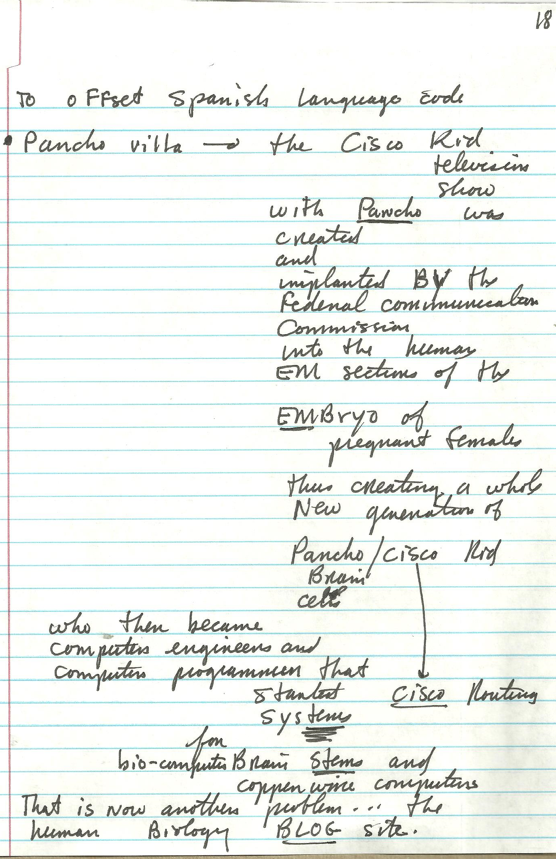 18
To offset Spanish Language code
• Pancho villa → the Cisco Kid
television
show
with Pancho was
created
and
implanted BY the
Federal communication
Commission
into the human
EM sections of the
EMBryo of
pregnant females
thus creating a whole
New generation of
Pancho/Cisco Kid
Brain
cells
who then became
computer engineers and
computer programmers that
started Cisco Routing
systems
for
bio-computer Brain stems and
copper wire computers
That is now another problem... the
human Biology BLOG site.